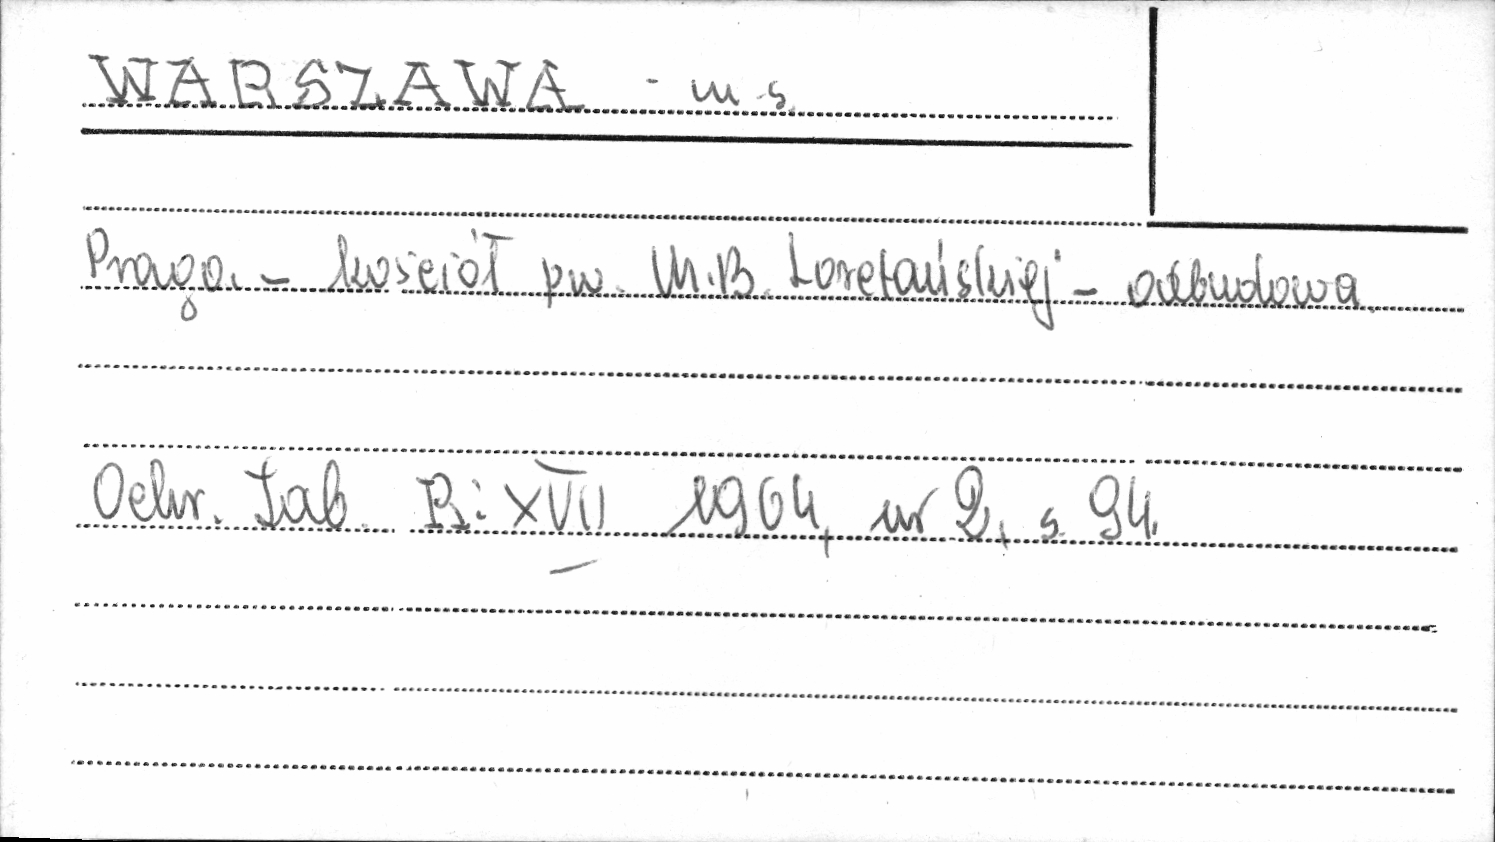 WARSZAWA - m. s.
Praga - kościół pw. M.B. Loretańskiej - odbudowa
Ochr. Zab. R: XVII 1964, nr 2, s. 94.